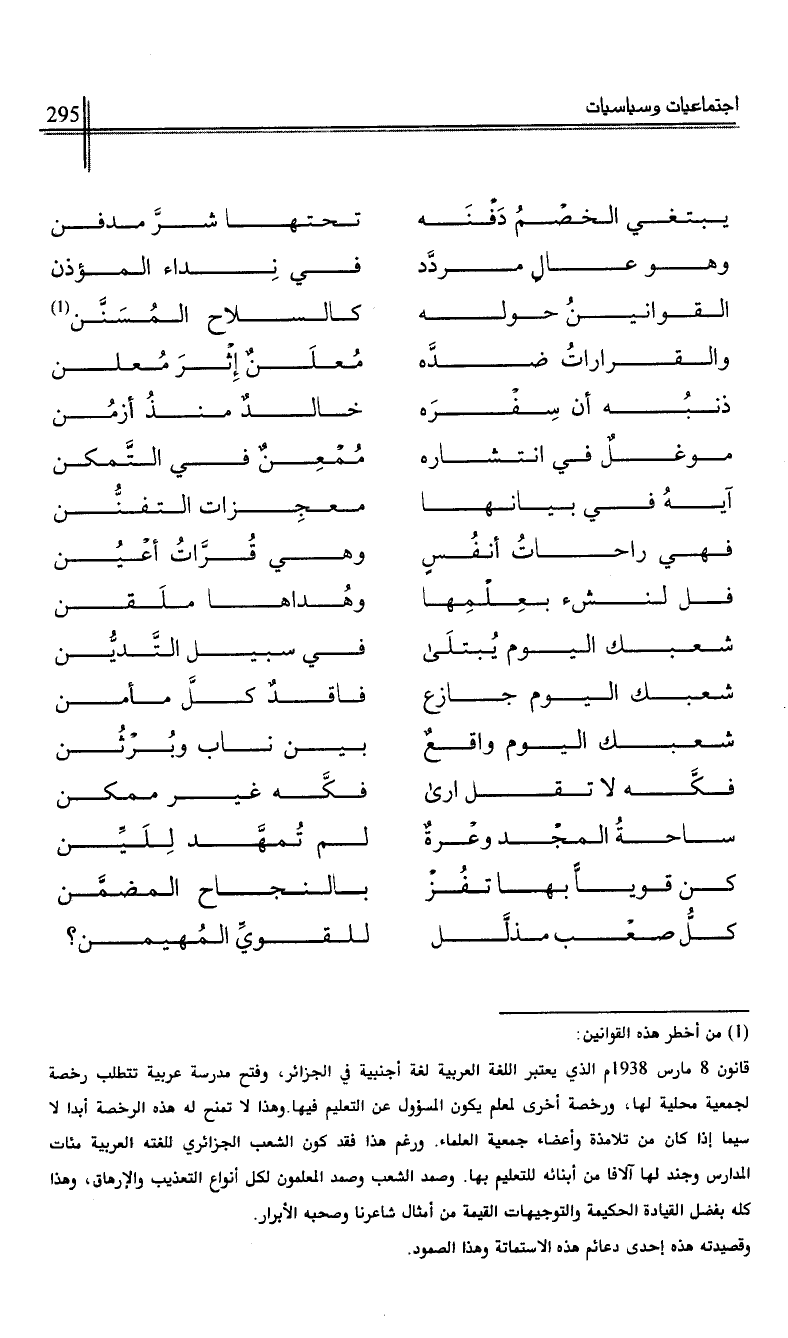 اجتماعيات وسياسيات 295
يبتغي الخصْمُ دَفْنَه تحتها شرَّ مدفن
وهو عالٍ مردَّد في نِداء المؤذن
القوانينُ حوله كالسلاح المُسَنَّن(1)
والقراراتُ ضدَّه مُعلَنٌ إثْرَ مُعلن
ذنبُه أن سِفْرَه خالدٌ منذُ أزمُن
موغلٌ في انتشاره مُمْعِنٌ في التَّمكن
آيةُ في بيانها معجزات التفنُّن
فهي راحاتُ أنفُسٍ وهي قُرَّاتُ أعْيُن
فل لنشء بعِلْمِها وهُداها ملَقن
شعبك اليوم يُبتلَىٰ في سبيل التَّديُّن
شعبك اليوم جازع فاقدٌ كلَّ مأمن
شعبك اليوم واقعٌ بين ناب وبُرْثُن
فكَّه لا تقل ارىٰ فكَّه غير ممكن
ساحةُ المجْد وعْرةٌ لم تُمهَّد لِلَيِّن
كن قوياً بها تفُزْ بالنجاح المضمَّن
كلُّ صعْب مذلَّل للقويِّ المُهيمن؟
(1) من أخطر هذه القوانين:
قانون 8 مارس 1938م الذي يعتبر اللغة العربية لغة أجنبية في الجزائر، وفتح مدرسة عربية تتطلب رخصة
لجمعية محلية لها، ورخصة أخرى لمعلم يكون المسؤول عن التعليم فيها.وهذا لا تمنح له هذه الرخصة أبدا لا
سيما إذا كان من تلامذة وأعضاء جمعية العلماء. ورغم هذا فقد كون الشعب الجزائري للغته العربية مئات
المدارس وجند لها آلافا من أبنائه للتعليم بها. وصمد الشعب وصمد المعلمون لكل أنواع التعذيب والإرهاق، وهذا
كله بفضل القيادة الحكيمة والتوجيهات القيمة من أمثال شاعرنا وصحبه الأبرار.
وقصيدته هذه إحدى دعائم هذه الاستماتة وهذا الصمود.